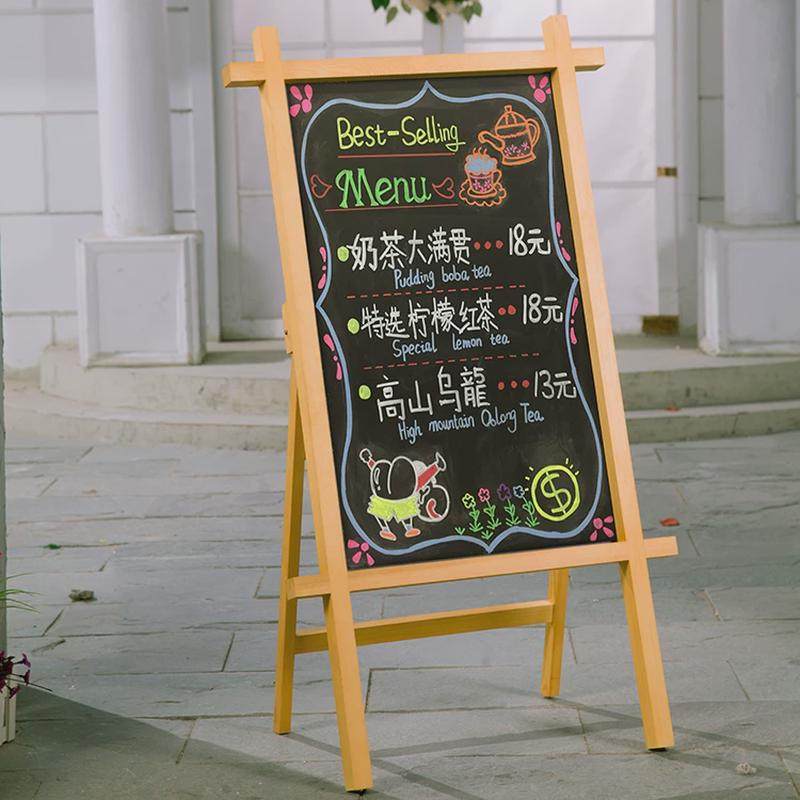 Best-Selling
Menu
奶茶大满贯•••18元
Pudding boba tea
特选柠檬红茶••18元
Special lemon tea
高山乌龍•••13元
High mountain Oolong Tea
$